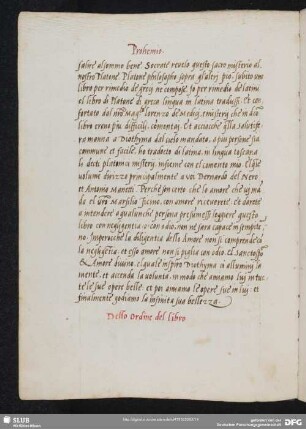 Prohemio
salire al sommo bene. Socrate revelò questo sacro misterio al
nostro Platone. Platone philosopho sopra gl'altri pio. subito uno
libro per rimedio de greci ne compose. Io per rimedio de latini
el libro di Platone di greca lingua in latina tradussi. Et con
fortato dal nro Mag.co Lorenzo de Medici, i misterj che in dicto
libro erono piu difficili, comentaj. Et acciochè quella salutifera
manna a Diothima dal cielo mandata, a piu persone sia
commune et facile, ho tradotto di latina in lingua toscana
lo dicti platonici misterj, insieme con el comento mio. El quale
volume dirizzo principalmente a voi Bernardo del Nero,
et Antonio Manetti. Perchè son certo che lo amore che vj man
da el vro Marsilio ficino, con amore riceverete. et darete
a intendere a qualunche persona presumessi leggere questo
libro con negligentia o con odio, non ne sarà capace in sempiter
no. Imperocchè la diligentia dello Amore non si comprende con
la negligentia. et esso amore non si piglia con odio. el sancto spirito
Amore divino, el quale inspirò Diothima ci allumini la
mente, et accenda la volunta, in modo che amiamo luj in tut
te le sue opere belle. et poi amiamo le opere sue in luj. et
finalmente godiamo la infinita sua bellezza.
Dello Ordine del libro
SLUB
DFG